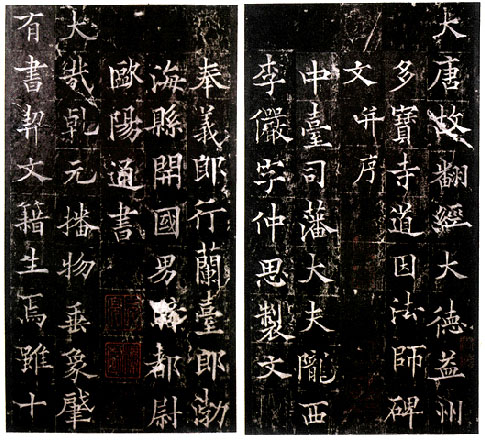 大唐故翻經大德益州
多寶寺道因法師碑
文并序
中臺司藩大夫隴西
李儼字仲思製文
奉義郎行蘭臺郎勃
海縣開國男騎都尉
歐陽通書
大哉乹元播物垂象肇
有書契文籍生焉雖十